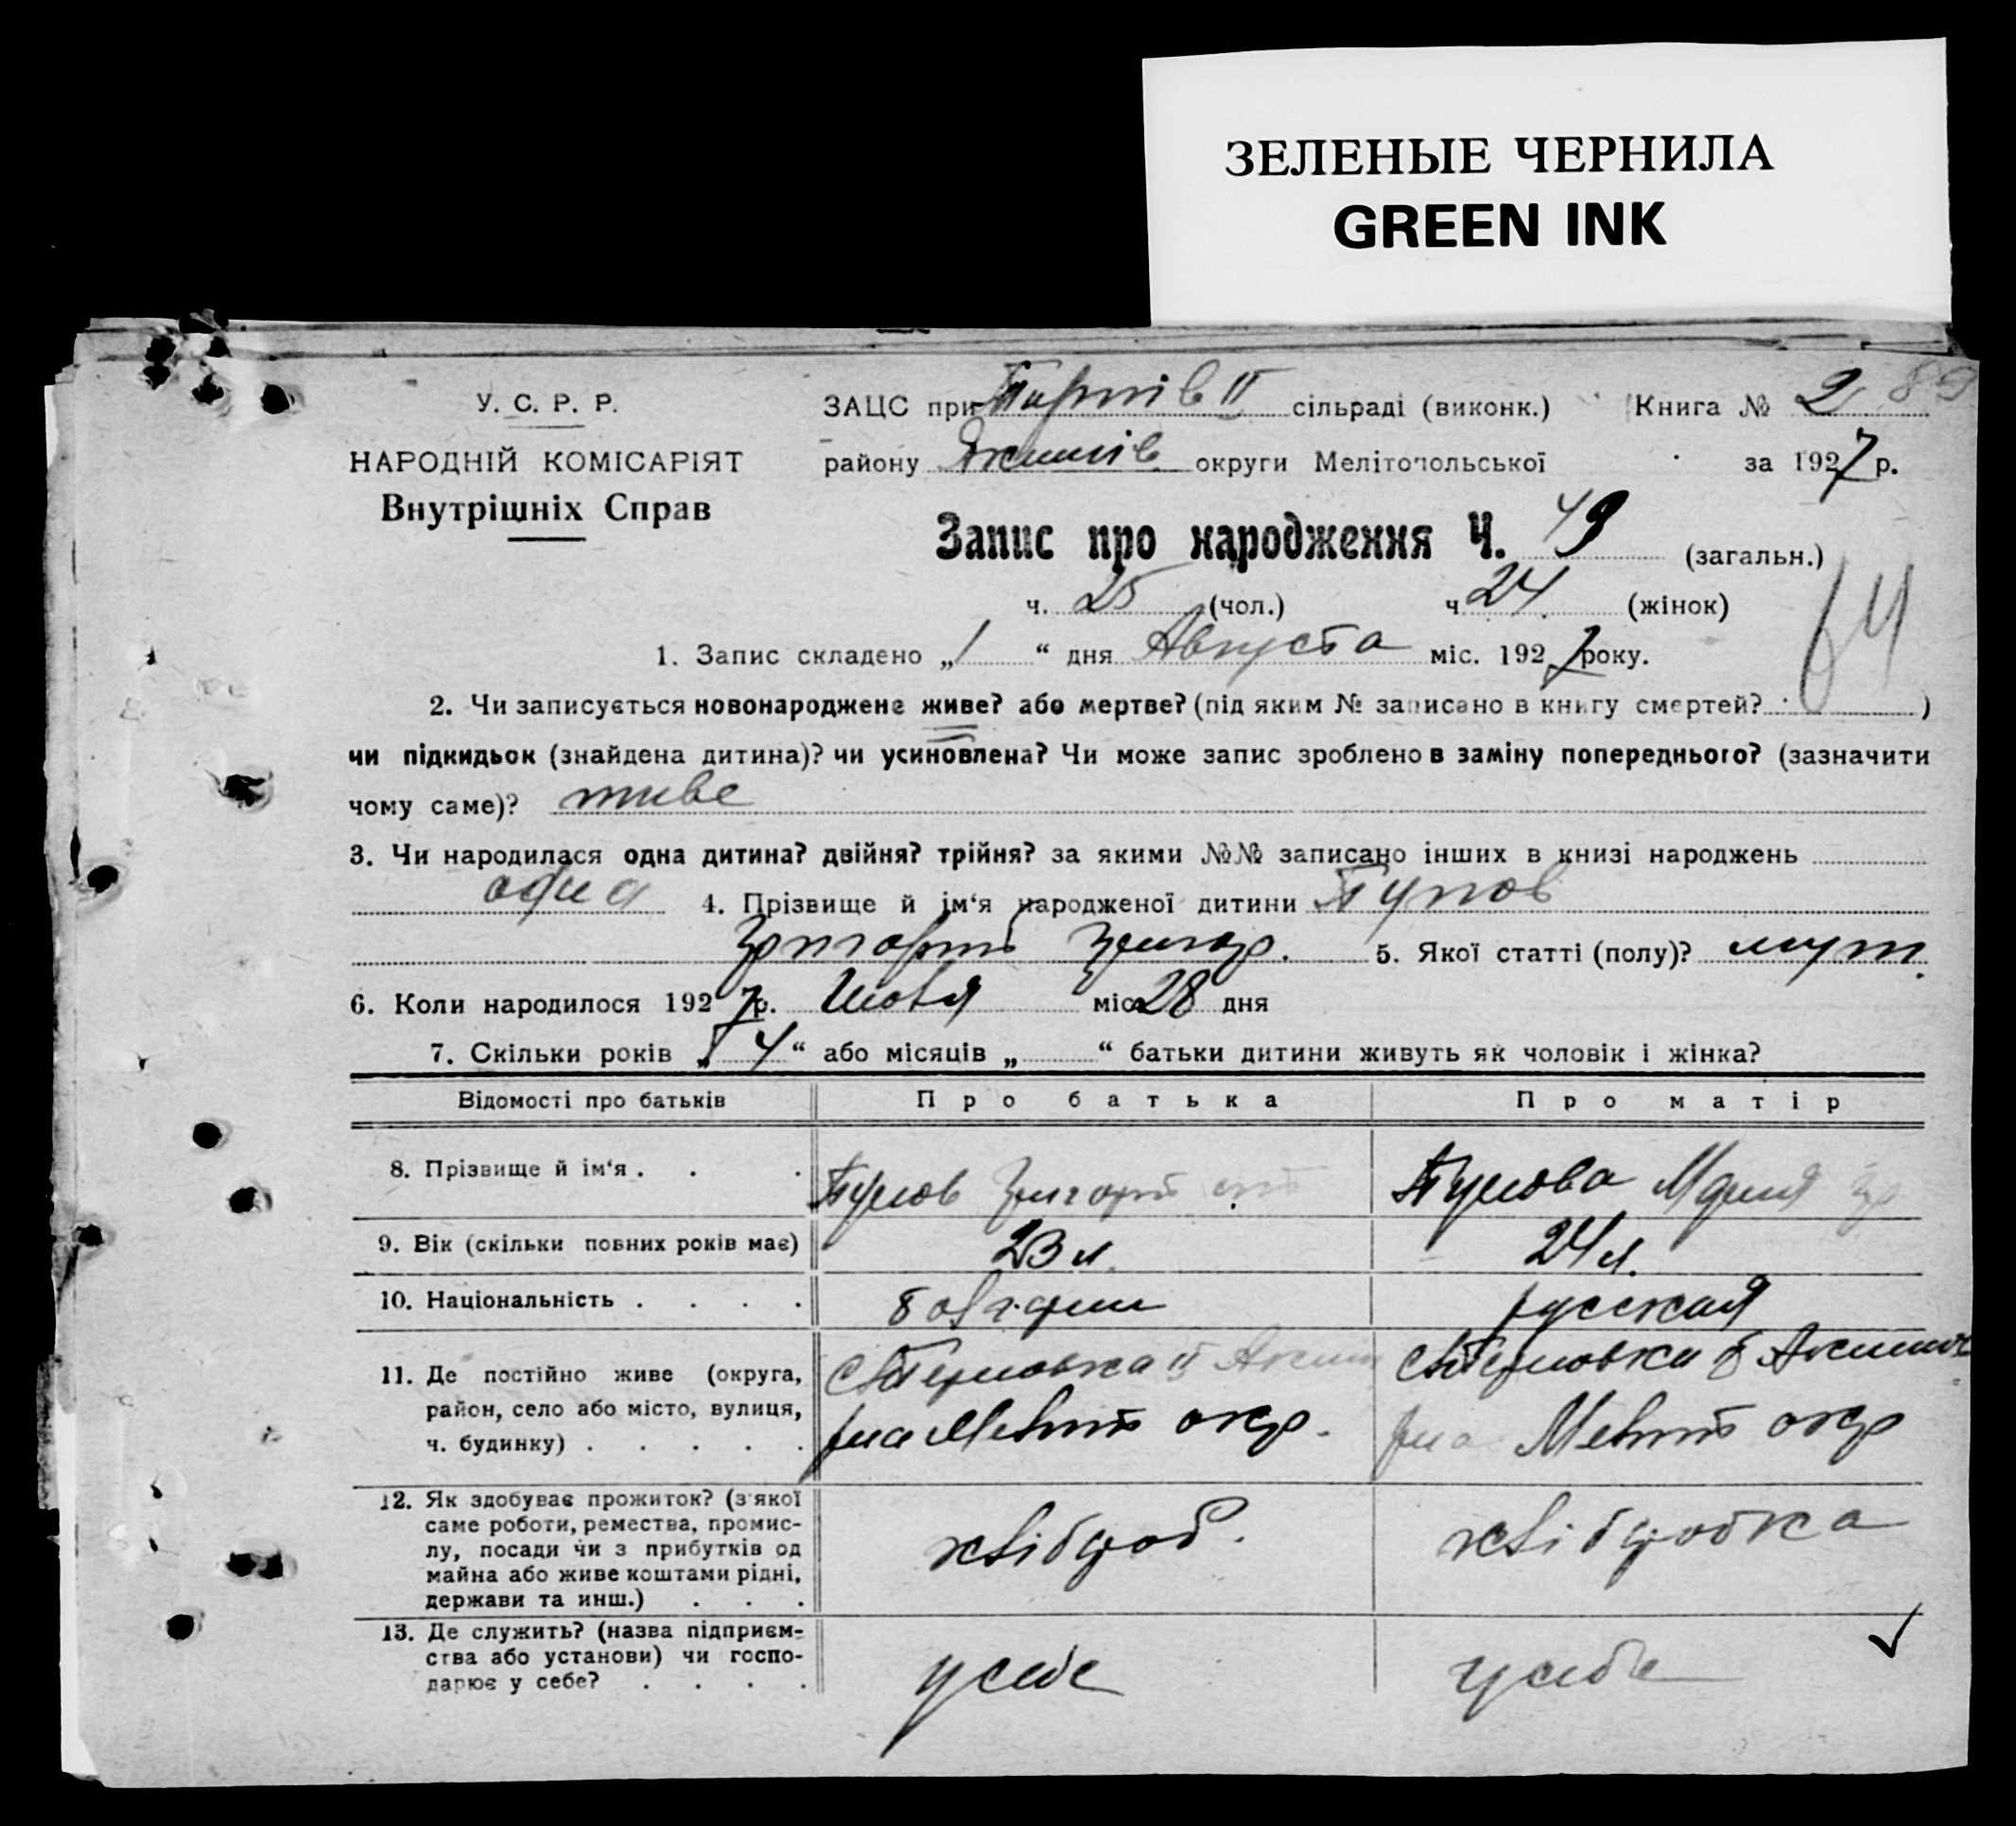 ЗЕЛЕНЫЕ ЧЕРНИЛА
GREEN INK
У. С. Р. Р.
НАРОДНІЙ КОМІСАРІЯТ
Внутрішніх Справ
ЗАЦС при II сільраді (виконк.) Книга № 2 89
району Якимів округи Мелітопольської за 1927 р.
Запис про народження Ч. 49 (загальн.)
ч. 25 (чол.) ч. 24 (жінок)
64
1. Запис складено „1“ дня Августа міс. 1927 року.
2. Чи записується новонароджене живе? або мертве? (під яким № записано в книгу смертей? )
чи підкидьок (знайдена дитина)? чи усиновлена? Чи може запис зроблено в заміну попереднього? (зазначити
чому саме)? живе
3. Чи народилася одна дитина? двійня? трійня? за якими №№ записано інших в книзі народжень
одна 4. Прізвище й ім‘я народженої дитини
Григорій Григор. 5. Якої статті (полу)? муж.
6. Коли народилося 1927 р. Июля міс. 28 дня
7. Скільки років „4“ або місяців „ “ батьки дитини живуть як чоловік і жінка?
Відомості про батьків Про батька Про матір
8. Прізвище й ім‘я . . . Григорій Мария
9. Вік (скільки повних років має) 23 л. 24 л.
10. Національність . . . . болгарин русская
11. Де постійно живе (округа, район, село або місто, вулиця, ч. будинку) . . . . .
с. Терновка II Аким
р-на Меліт окр.
с. Терновка II Аким
р-на Меліт окр
12. Як здобуває прожиток? (з якої саме роботи, ремества, промислу, посади чи з прибутків од майна або живе коштами рідні, держави та инш.) . . .
хлібороб. хліборобка
13. Де служить? (назва підприємства або установи) чи господарює у себе? . . . .
у себе у себе